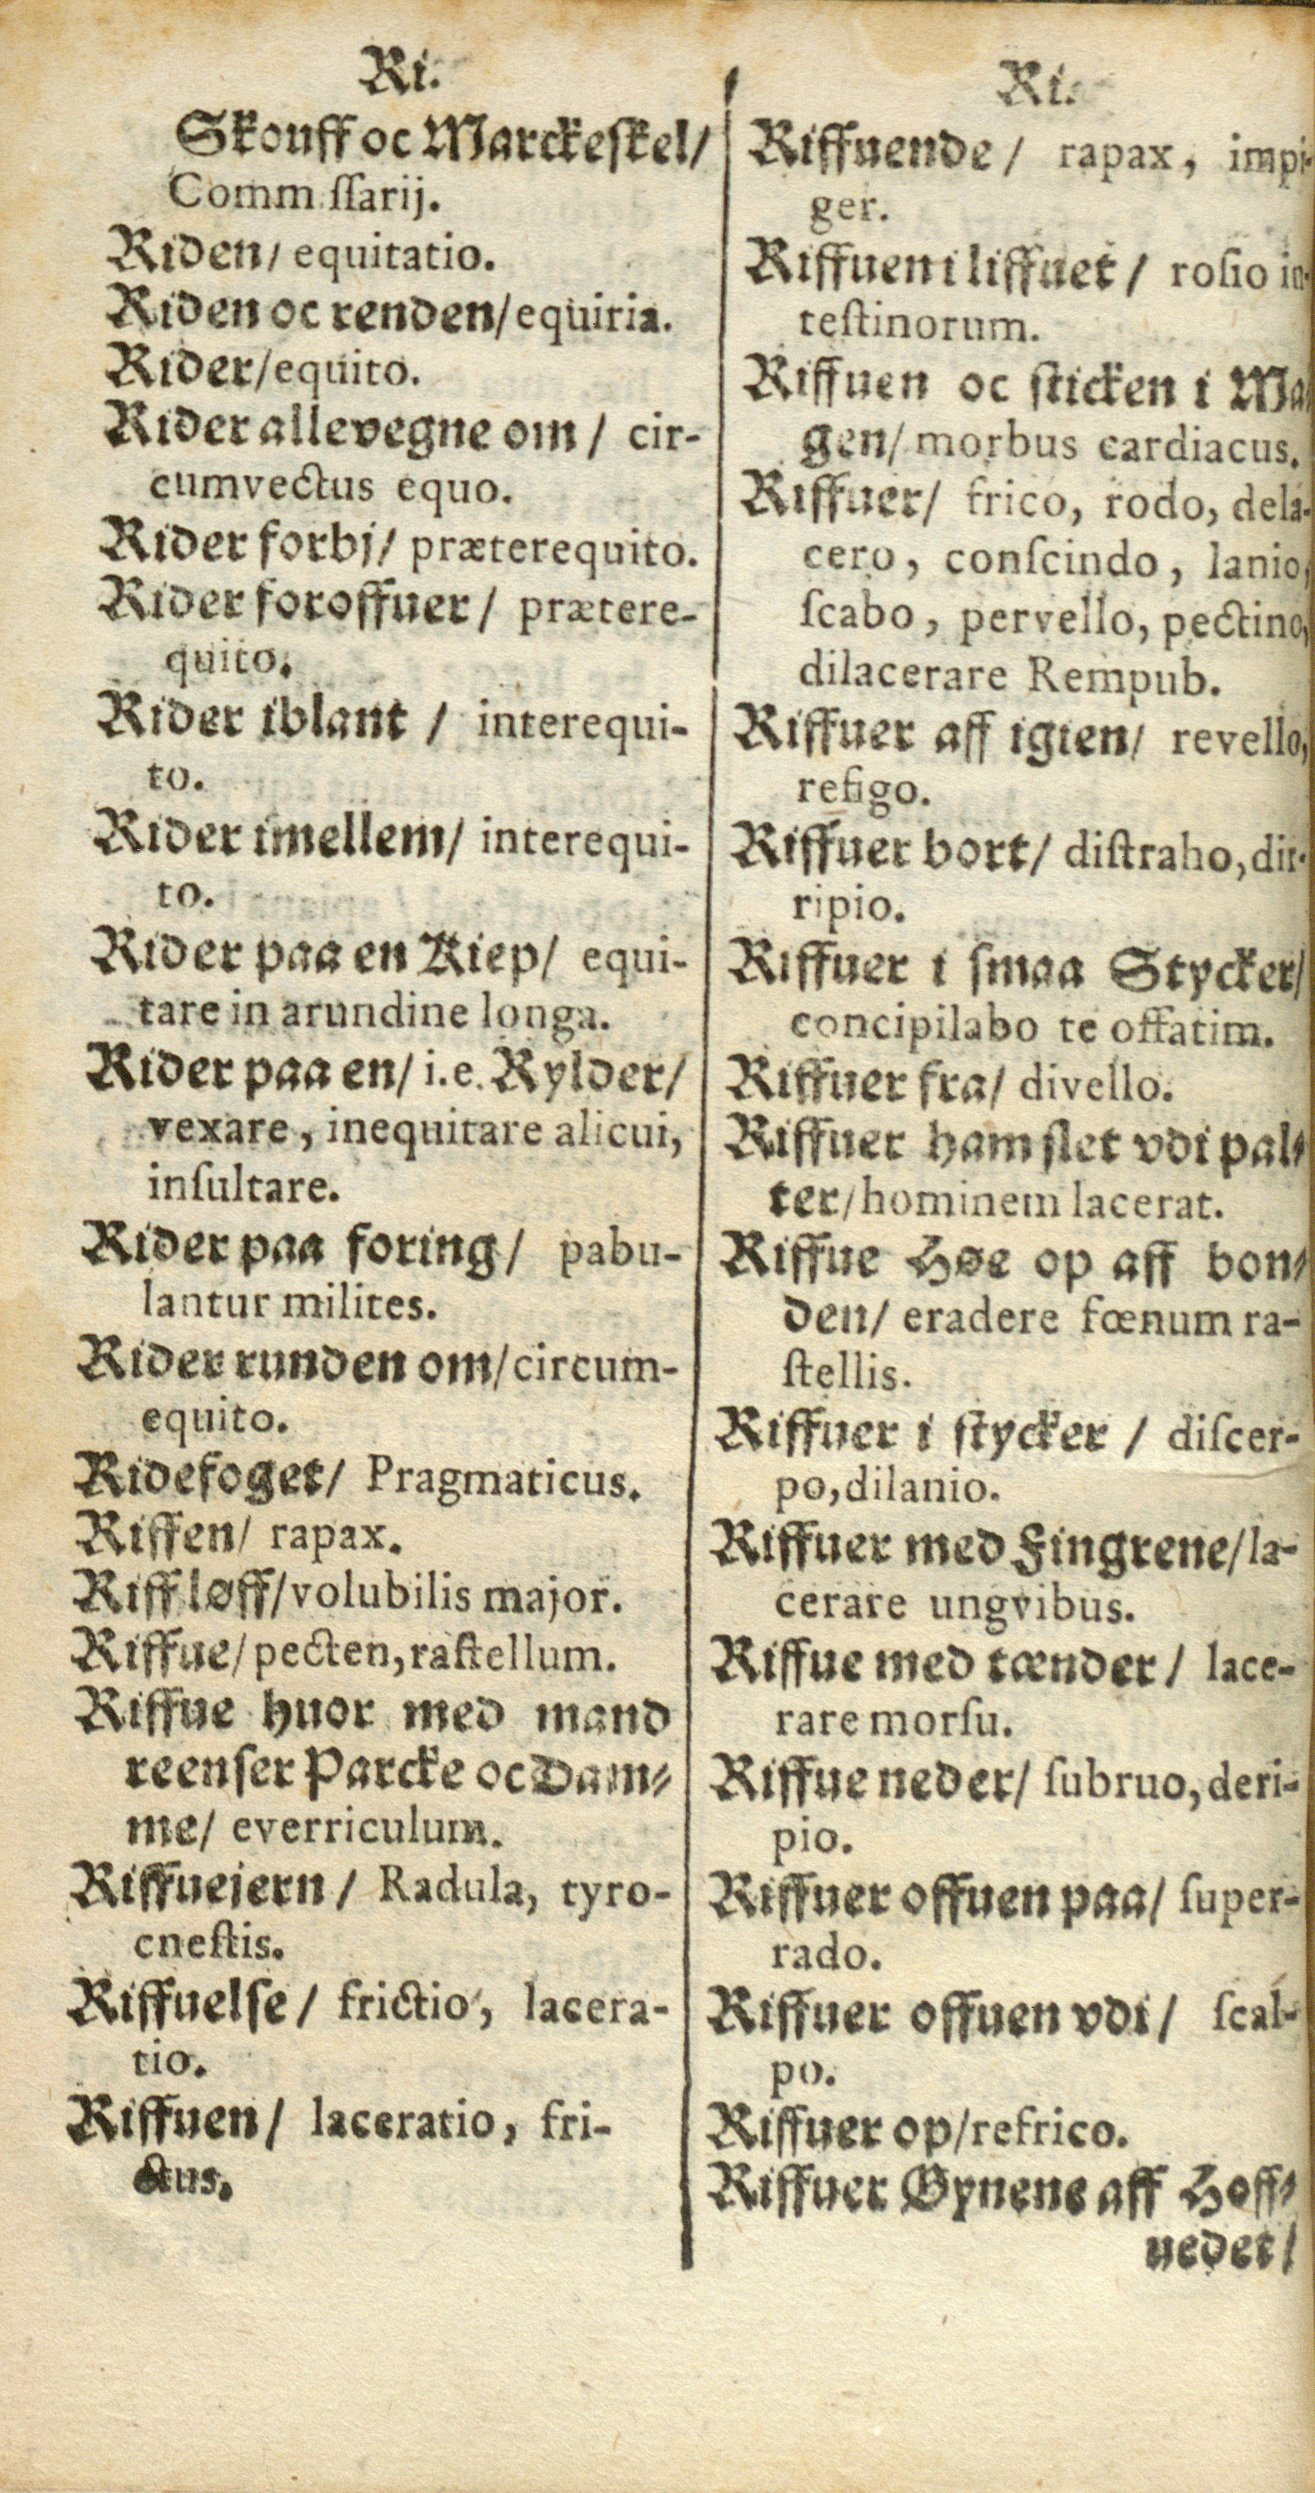 Ri.
Skouff oc Marckeſkel/
Comm ſſarij.
Riden/ equitatio.
Riden oc renden/ equiria.
Rider/ equito.
Rider allevegne om / cir-
cumvectus equo.
Rider forbj/ præterequito.
Rider foroffuer / prætere-
quito.
Rider iblant / interequi-
to.
Rider imellem/ interequi-
to.
Rider paa en Kiep/ equi-
tare in arundine longa.
Rider paa en/ i.e. Rylder/
vexare, inequitare alicui,
inſultare.
Rider paa foring/ pabu-
lantur milites.
Rider runden om/ circum-
equito.
Ridefoget/ Pragmaticus.
Riffen/ rapax.
Riff løff/ volubilis major.
Riffue/ pecten, raſtellum.
Riffue huor med mand
reenſer Parcke oc Dam-
me/ everriculum.
Riffuejern / Radula, tyro-
cneſtis.
Riffuelſe / frictio, lacera-
tio.
Riffuen/ laceratio, fri-
ctus.
Ri.
Riffuende / rapax, impi-
ger.
Riffuen i liffuet / roſio in-
teſtinorum.
Riffuen oc ſticken i Ma-
gen/ morbus cardiacus.
Riffuer/ frico, rodo, dela-
cero, conſcindo, lanio,
ſcabo, pervello, pectino,
dilacerare Rempub.
Riffuer aff igien/ revello,
refigo.
Riffuer bort/ diſtraho, dir-
ripio.
Riffuer i ſmaa Stycker/
concipilabo te offatim.
Riffuer fra/ divello.
Riffuer ham ſlet vdi pal-
ter/ hominem lacerat.
Riffue Høe op aff bon-
den/ eradere fœnum ra-
ſtellis.
Riffuer i ſtycker / diſcer-
po, dilanio.
Riffuer med Fingrene/ la-
cerare ungvibus.
Riffue med tænder / lace-
rare morſu.
Riffue neder/ ſubruo, deri-
pio.
Riffuer offuen paa/ ſuper-
rado.
Riffuer offuen vdi/ ſcal-
po.
Riffuer op/ refrico.
Riffuer Øynene aff Hoff-
uedet/